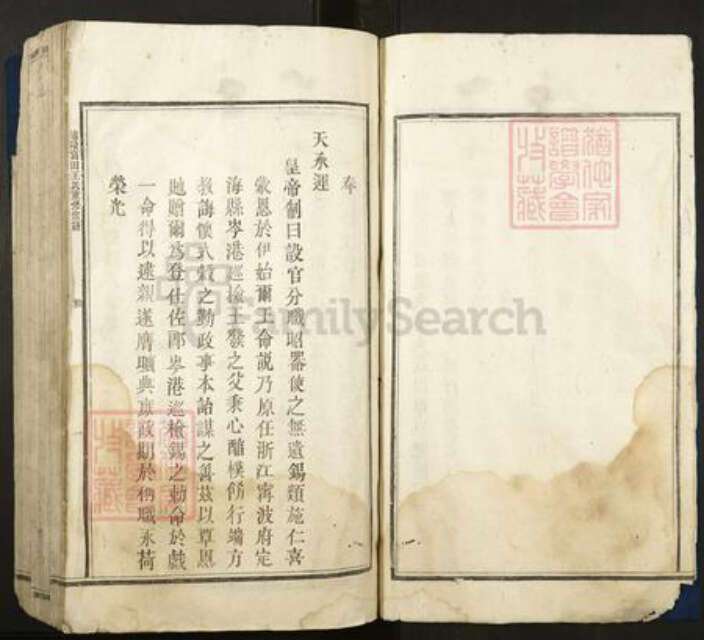 奉
天承運
皇帝制曰設官分職昭器使之無遺錫類施仁喜
蒙恩於伊始爾王命說乃原任浙江寧波府定
海縣岑港巡檢王發之父秉心醕樸飭行端方
教誨懷式穀之勤政事本詒謀之善茲以覃恩
貤贈爾為登仕佐郎岑港巡檢錫之勅命於戲
一命得以逮親遂膺曠典庶政期於稱職永荷
榮光
FamilySearch
譜學會
收藏
收藏